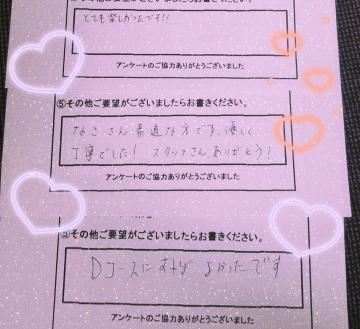 とても楽しかったです!!
アンケートのご協力ありがとうございました
⑤その他ご要望がございましたらお書きください。
なこさん素適な方です、優しく
丁寧でした! スタッフさん、ありがとう!
アンケートのご協力ありがとうございました
⑤その他ご要望がございましたらお書きください。
Dコースにすればよかったです
アンケートのご協力ありがとうございました